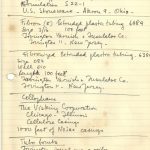 Formulation S22-1
U.S. Stoneware - Akron 9, Ohio.
Fibron (R) Extruded plastic tubing
Size 3/16 100 feet
Irvington Varnish & Insulator Co.
Irvington 11, New Jersey.
Fibronized Extruded plastic tubing
Size
Wall
Length 100 feet
Irvington Varnish & Insulator Co.
Irvington 11, New Jersey.
Cellophane
The Visking Corporation
Chicago - Illinois
Cellulose Casing
1000 feet of Nojax casings